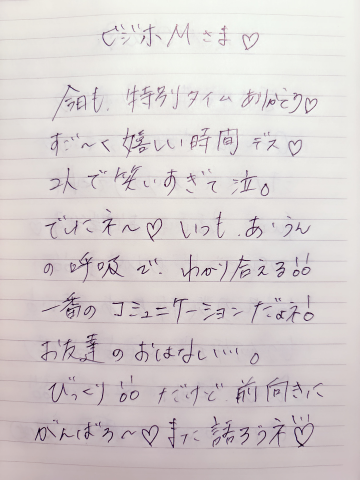 ビジホMさま♡
今日も、特別タイムありがとう♡
すご〜く嬉しい時間デス♡
2人で笑いすぎて泣。
でしたネ〜♡いつも、あ・うん
の呼吸で、わかり合える!!
一番のコミュニケーションだよネ!
お友達のおはなし、、、。
びっくり!!だけど、前向きに
がんばろ〜♡また語ろうネ!♡